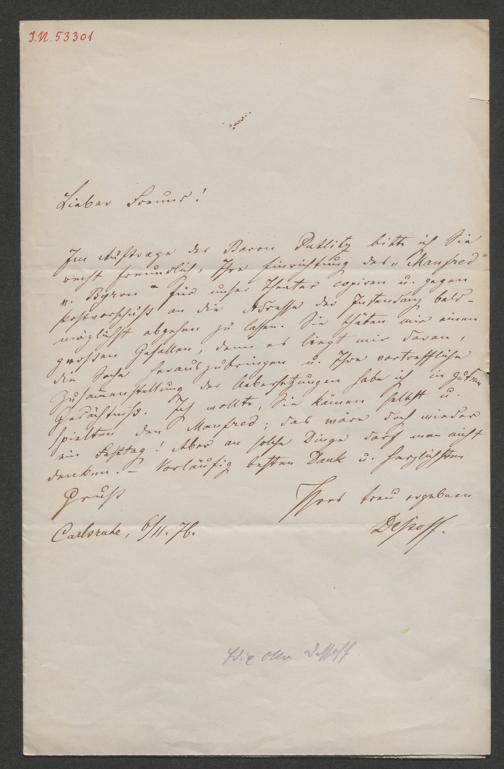 I.N. 53301
Lieber Freund!
Im Auftrage des Baron Putlitz bitte ich Sie
recht freundlich, Ihre Einrichtung des „Manfred"
v. Byron für unser Theater copiren u. gegen
Postvorschuß an die Adresse der Intendanz bald-
möglichst abgehen zu lassen. Sie thäten mir einen
großen Gefallen, denn es liegt mir daran,
die Sache herauszubringen u. Ihre vortreffliche
Zusammenstellung der Uebersetzungen habe ich in gutem
Gedächtniß. Ich wollte, Sie kämen selbst u.
spielten den Manfred; das wäre doch wieder
ein Festtag! Aber an solche Dinge darf man nicht
denken. – Vorläufig besten Dank u. herzlichsten
Gruß
Ihres treu ergebenen
Carlsruhe, 6/11. 76.
Dessoff.
Otto Dessoff